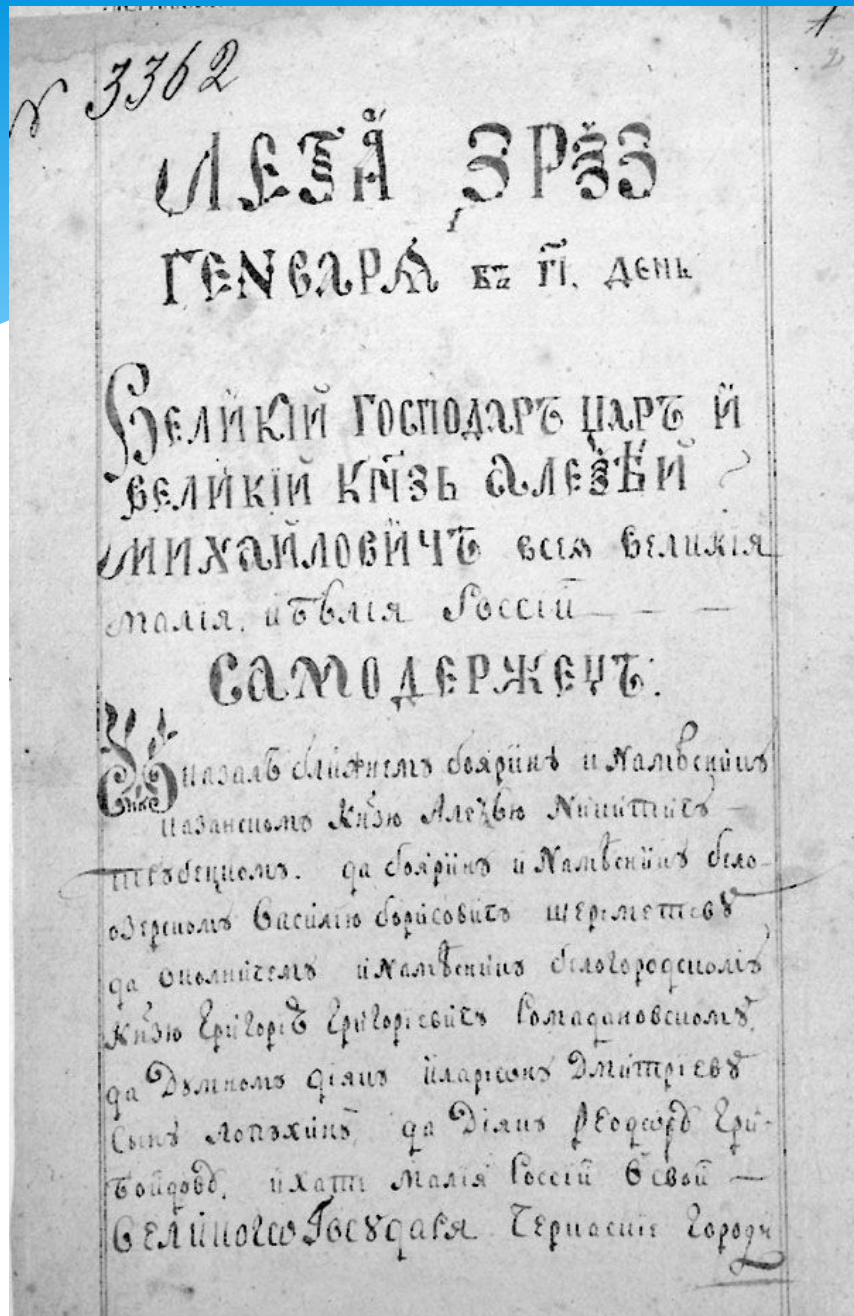 № 3362
1
2
ЛЕТА ЗРѮЗ
ГЕНВАРѦ въ г҃і. день
Великій Господаръ царъ й
великій кн҃зь Алеѯѣй
Михайловичъ всея великія
малія, и бѣлія Россіи — —
САМОДЕРЖЕЦЪ:
Указалъ ближнему бояринꙋ и Намѣсникꙋ
казанскомꙋ Кн҃зю Алеѯѣю Никитичꙋ —
трꙋбецкомꙋ. да бояринꙋ и Намѣсникꙋ бело-
озерскомꙋ Василію борисовичꙋ шереметевꙋ
да околничемꙋ и Намѣсникꙋ белогородскомꙋ
Кн҃зю Григорію Григоріевичꙋ Ромадановскомꙋ,
да Дꙋмномꙋ діякꙋ иларіѡнꙋ Дмитріевꙋ
сынꙋ лопꙋхинꙋ, да Діякꙋ Ѳеодорꙋ Гри-
бойдовꙋ, ихати малія Россіи въ свои —
великогѡ Госꙋдаря Черкаскіе Городи